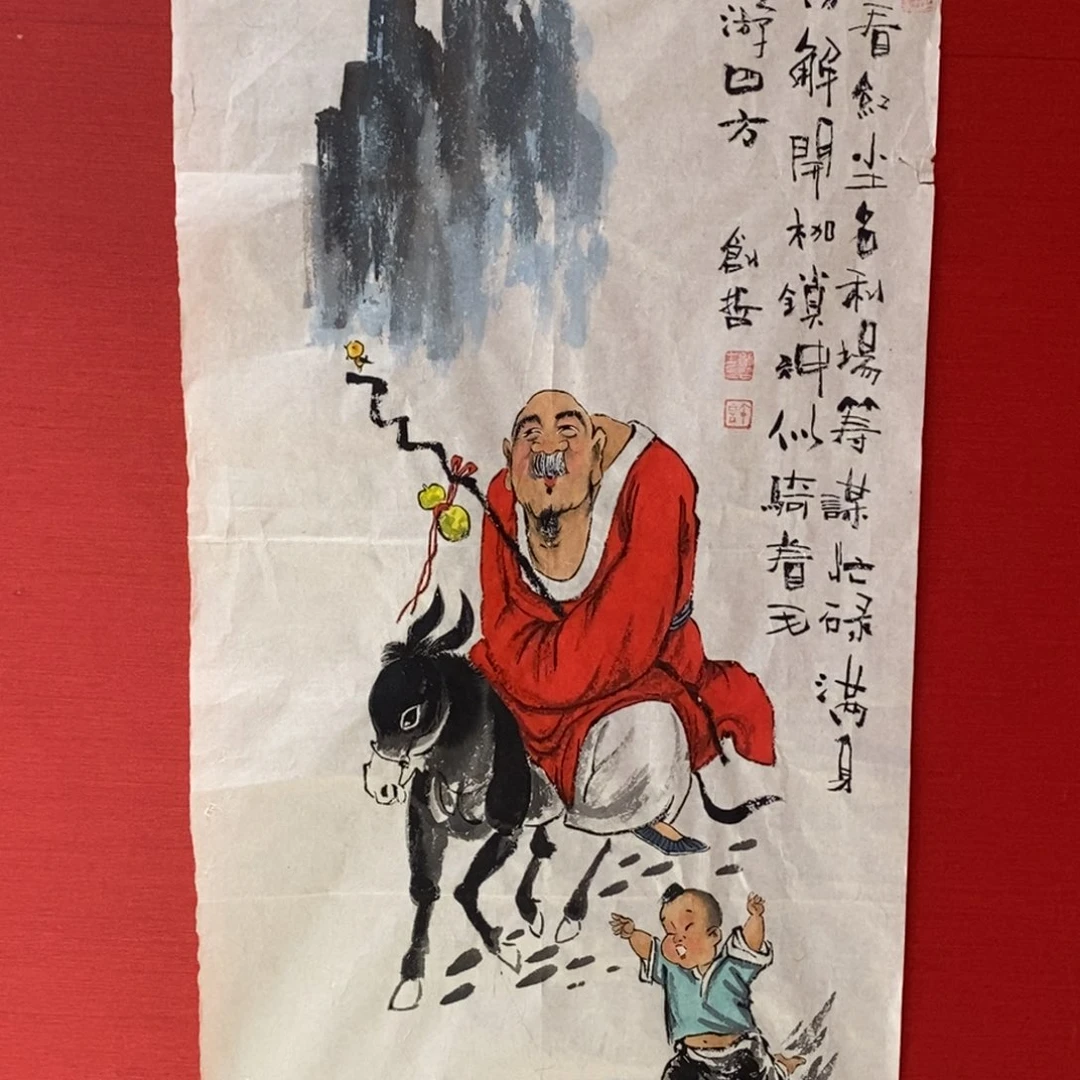 看紅尘名利場筹謀忙碌满身
解開枷鎖神似騎着毛
游四方
創哲